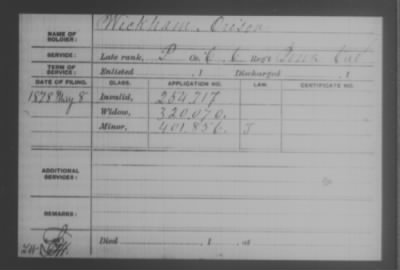 NAME OF SOLDIER: Wickham, Orison
SERVICE: Late rank, P Co. C, 6 Reg't Penn Cav
TERM OF SERVICE: Enlisted , 1 Discharged , 1
DATE OF FILING. CLASS. APPLICATION NO. LAW. CERTIFICATE NO.
1878 May 8 Invalid, 254.717
Widow, 320.070.
Minor, 401.856. J
ADDITIONAL SERVICES:
REMARKS:
Died , 1 , at